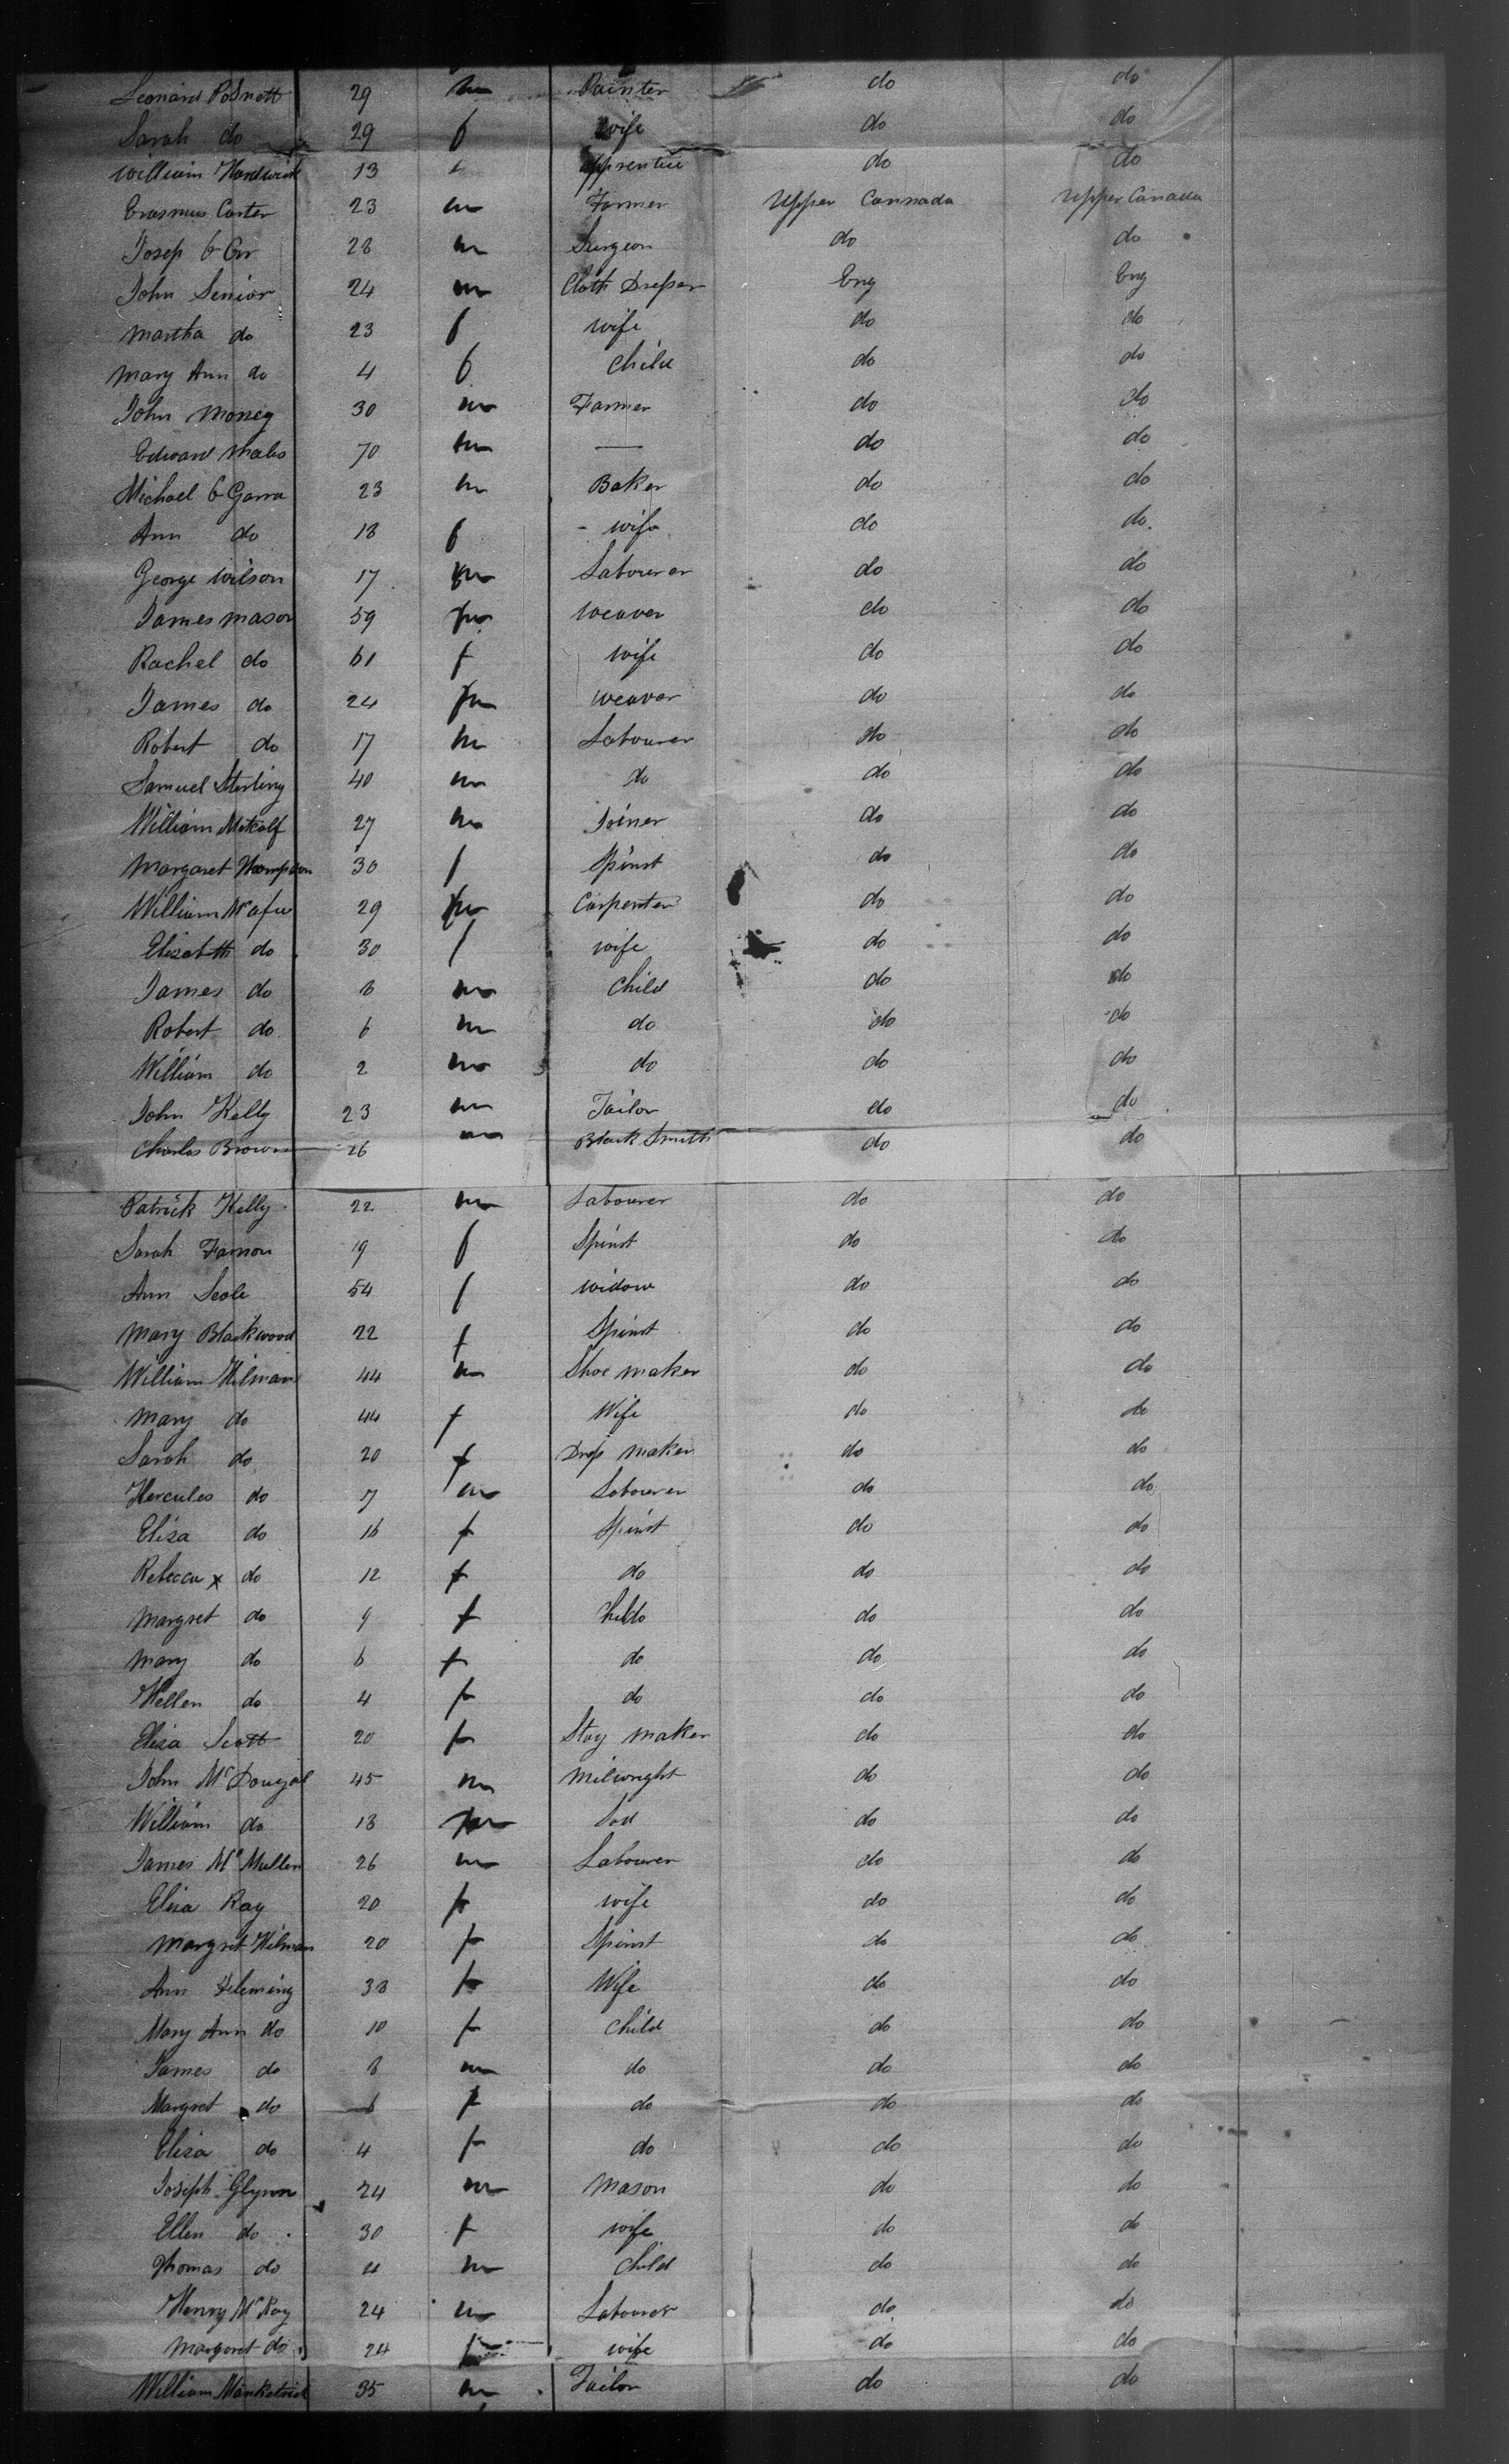 Leonard Posnett 29 m Painter do do
Sarah do 29 f wife do do
William Hardwick 13 apprentice do do
Erasmus Carter 23 m Farmer Upper Cannada Upper Canada
Josep O Orr 28 m Surgeon do do
John Senior 24 m Cloth Dresser Eng Eng
Martha do 23 f wife do do
Mary Ann do 4 f Child do do
John Money 30 m Farmer do do
Edward Males 70 m — do do
Michael O Garra 23 m Baker do do
Ann do 18 f - wife do do
George Wilson 17 m Labourer do do
James Mason 59 m weaver do do
Rachel do 61 f wife do do
James do 24 m weaver do do
Robert do 17 m Labourer do do
Samuel Sterling 40 m do do do
William Metcalf 27 m Joiner do do
Margaret Thompson 30 f Spinst do do
William McAfee 29 m Carpenter do do
Elisabeth do 30 f wife do do
James do 8 m Child do do
Robert do 6 m do do do
William do 2 m do do do
John Kelly 23 m Tailor do do
Charles Brown 26 m Black Smith do do
Patrick Kelly 22 m Labourer do do
Sarah Farnon 19 f Spinst do do
Ann Scole 54 f widow do do
Mary Blackwood 22 f Spinst do do
William Hilman 44 m Shoe maker do do
Mary do 44 f Wife do do
Sarah do 20 f Dress maker do do
Hercules do 17 m Labourer do do
Elisa do 16 f Spinst do do
Rebecca x do 12 f do do do
Margret do 9 f Child do do
Mary do 6 f do do do
Hellen do 4 f do do do
Elisa Scott 20 f Stay maker do do
John McDougal 45 m Milwright do do
William do 18 m Son do do
James McMullen 26 m Labourer do do
Elisa Ray 20 f wife do do
Margret Hilman 20 f Spinst do do
Ann Fleming 38 f Wife do do
Mary Ann do 10 f Child do do
James do 8 m do do do
Margret do 6 f do do do
Elisa do 4 f do do do
Joseph Glynn 24 m Mason do do
Ellen do 30 f wife do do
Thomas do 4 m Child do do
Henry McRay 24 m Labourer do do
Margaret do 24 f wife do do
William 35 m Tailor do do